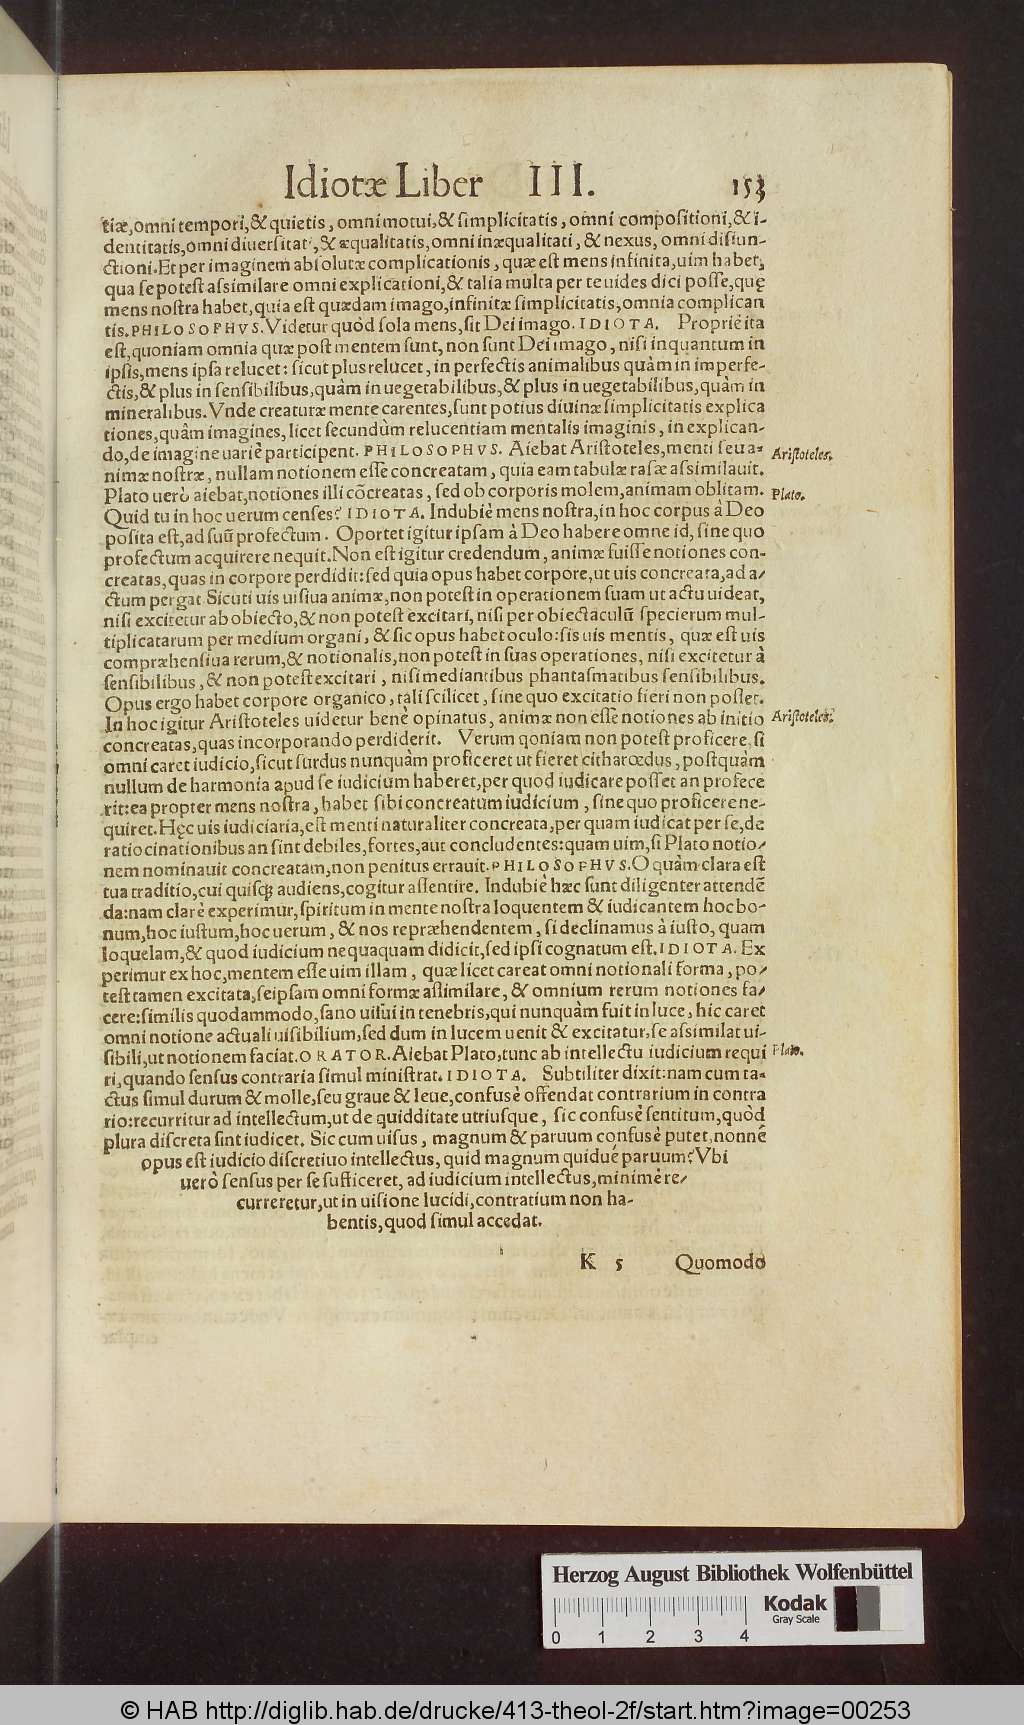 Idiotæ Liber III. 153
tiæ, omni tempori, & quietis, omni motui, & simplicitatis, omni compositioni, & i-
dentitatis, omni diuersitati, & æqualitatis, omni inæqualitati, & nexus, omni disiun-
ctioni. Et per imaginem absolutæ complicationis, quæ est mens infinita, uim habet,
qua se potest assimilare omni explicationi, & talia multa per te uides dici posse, quę
mens nostra habet, quia est quædam imago, infinitæ simplicitatis, omnia complican
tis. PHILOSOPHVS. Videtur quòd sola mens, sit Dei imago. IDIOTA. Propriè ita
est, quoniam omnia quæ post mentem sunt, non sunt Dei imago, nisi inquantum in
ipsis, mens ipsa relucet: sicut plus relucet, in perfectis animalibus quàm in imperfe-
ctis, & plus in sensibilibus, quàm in uegetabilibus, & plus in uegetabilibus, quàm in
mineralibus. Vnde creaturæ mente carentes, sunt potius diuinæ simplicitatis explica
tiones, quâm imagines, licet secundùm relucentiam mentalis imaginis, in explican-
do, de imagine uariè participent. PHILOSOPHVS. Aiebat Aristoteles, menti seu a- Aristoteles.
nimæ nostræ, nullam notionem esse concreatam, quia eam tabulæ rasæ assimilauit.
Plato uerò aiebat, notiones illi cõcreatas, sed ob corporis molem, animam oblitam. Plato.
Quid tu in hoc uerum censes? IDIOTA. Indubiè mens nostra, in hoc corpus à Deo
posita est, ad suũ profectum. Oportet igitur ipsam à Deo habere omne id, sine quo
profectum acquirere nequit. Non est igitur credendum, animæ fuisse notiones con-
creatas, quas in corpore perdidit: sed quia opus habet corpore, ut uis concreata, ad a-
ctum pergat. Sicuti uis uisiua animæ, non potest in operationem suam ut actu uideat,
nisi excitetur ab obiecto, & non potest excitari, nisi per obiectaculũ specierum mul-
tiplicatarum per medium organi, & sic opus habet oculo: sis uis mentis, quæ est uis
compræhensiua rerum, & notionalis, non potest in suas operationes, nisi excitetur à
sensibilibus, & non potest excitari, nisi mediantibus phantasmatibus sensibilibus.
Opus ergo habet corpore organico, tali scilicet, sine quo excitatio fieri non posset.
In hoc igitur Aristoteles uidetur benè opinatus, animæ non esse notiones ab initio Aristoteles.
concreatas, quas incorporando perdiderit. Verum qoniam non potest proficere, si
omni caret iudicio, sicut surdus nunquàm proficeret ut fieret citharœdus, postquàm
nullum de harmonia apud se iudicium haberet, per quod iudicare posset an profece
rit: ea propter mens nostra, habet sibi concreatum iudicium, sine quo proficere ne-
quiret. Hęc uis iudiciaria, est menti naturaliter concreata, per quam iudicat per se, de
ratiocinationibus an sint debiles, fortes, aut concludentes: quam uim, si Plato notio-
nem nominauit concreatam, non penitus errauit. PHILOSOPHVS. O quàm clara est
tua traditio, cui quisqꝫ audiens, cogitur assentire. Indubiè hæc sunt diligenter attendẽ
da: nam clarè experimur, spiritum in mente nostra loquentem & iudicantem hoc bo-
num, hoc iustum, hoc uerum, & nos repræhendentem, si declinamus à iusto, quam
loquelam, & quod iudicium nequaquam didicit, sed ipsi cognatum est. IDIOTA. Ex
perimur ex hoc, mentem esse uim illam, quæ licet careat omni notionali forma, po-
test tamen excitata, seipsam omni formæ assimilare, & omnium rerum notiones fa-
cere: similis quodammodo, sano uisui in tenebris, qui nunquàm fuit in luce, hic caret
omni notione actuali uisibilium, sed dum in lucem uenit & excitatur, se assimilat ui-
sibili, ut notionem faciat. ORATOR. Aiebat Plato, tunc ab intellectu iudicium requi Plato.
ri, quando sensus contraria simul ministrat. IDIOTA. Subtiliter dixit: nam cum ta-
ctus simul durum & molle, seu graue & leue, confusè offendat contrarium in contra
rio: recurritur ad intellectum, ut de quidditate utriusque, sic confusè sentitum, quòd
plura discreta sint iudicet. Sic cum uisus, magnum & paruum confusè putet, nonné
opus est iudicio discretiuo intellectus, quid magnum quidué paruum? Vbi
uerò sensus per se sufficeret, ad iudicium intellectus, minimè re-
curreretur, ut in uisione lucidi, contratium non ha-
bentis, quod simul accedat.
K 5 Quomodo
Herzog August Bibliothek Wolfenbüttel
Kodak
Gray Scale
0 1 2 3 4
© HAB http://diglib.hab.de/drucke/413-theol-2f/start.htm?image=00253